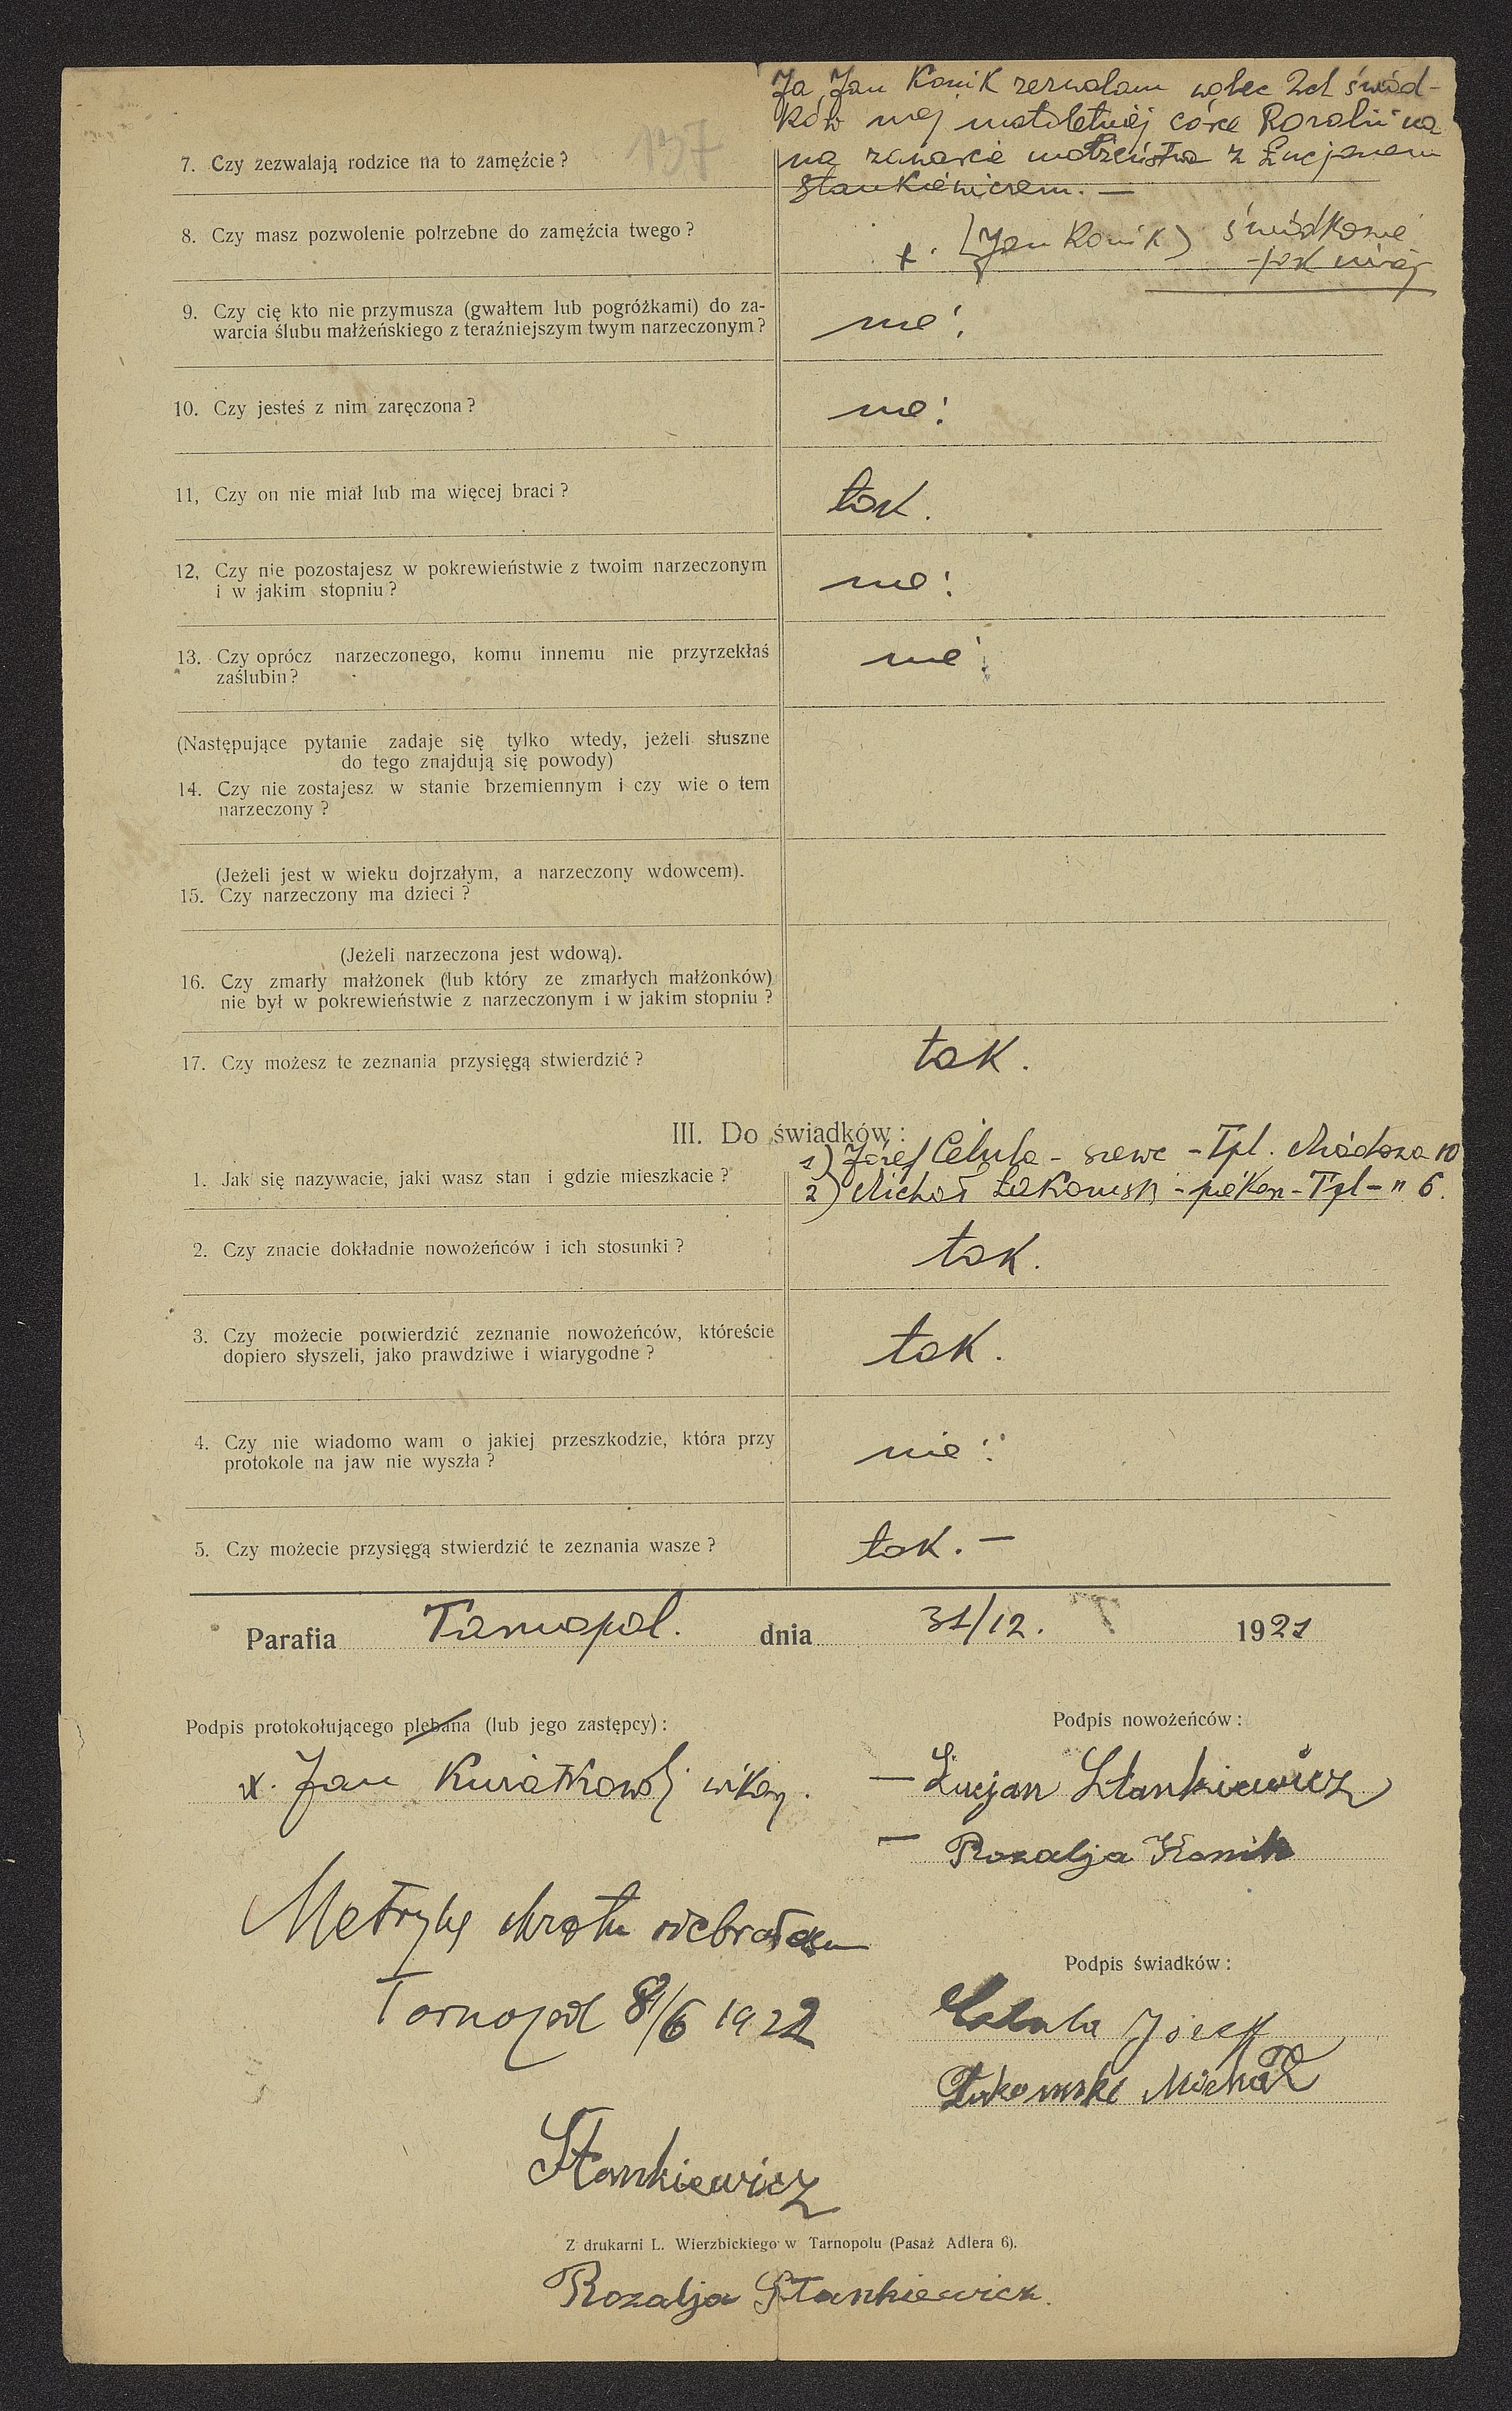 Ja Jan Konik zezwalam wobec 2ch świad-
ków mej małoletniej córce Rozalii na
137
7. Czy zezwalają rodzice na to zamęźcie? na zawarcie małżeństwa z Łucjanem
Stankiewiczem. —
8. Czy masz pozwolenie polrzebne do zamęźcia twego? +. (Jan Konik) świadkowie
jak niżej
9. Czy cię kto nie przymusza (gwałtem lub pogróżkami) do za-
warcia ślubu małżeńskiego z teraźniejszym twym narzeczonym? nie!
10. Czy jesteś z nim zaręczona? nie!
11, Czy on nie miał lub ma więcej braci? tak.
12, Czy nie pozostajesz w pokrewieństwie z twoim narzeczonym
i w jakim stopniu? nie!
13. Czy oprócz narzeczonego, komu innemu nie przyrzekłaś
zaślubin? nie!
(Następujące pytanie zadaje się tylko wtedy, jeżeli słuszne
do tego znajdują się powody)
14. Czy nie zostajesz w stanie brzemiennym i czy wie o tem
narzeczony?
(Jeżeli jest w wieku dojrzałym, a narzeczony wdowcem).
15. Czy narzeczony ma dzieci?
(Jeżeli narzeczona jest wdową).
16. Czy zmarły małżonek (lub który ze zmarłych małżonków)
nie był w pokrewieństwie z narzeczonym i w jakim stopniu?
17. Czy możesz te zeznania przysięgą stwierdzić? tak.
III. Do świadków:
1) Józef Cebula - szewc - Tpl. 10
1. Jak się nazywacie, jaki wasz stan i gdzie mieszkacie? 2) Michał - piekarz - Tpl - " 6.
2. Czy znacie dokładnie nowożeńców i ich stosunki? tak.
3. Czy możecie potwierdzić zeznanie nowożeńców, któreście
dopiero słyszeli, jako prawdziwe i wiarygodne? tak.
4. Czy nie wiadomo wam o jakiej przeszkodzie, która przy
protokole na jaw nie wyszła? nie!
5. Czy możecie przysięgą stwierdzić te zeznania wasze? tak. —
Parafia Tarnopol. dnia 31/12. 1921
Podpis protokołującego plebana (lub jego zastępcy): Podpis nowożeńców:
x. Jan Kwiatkowski wikary. — Łucjan Stankiewicz
— Rozalja Konik
Metrykę chrztu odebrałem
Podpis świadków:
Tarnopol 8/6 1922 Cebula Józeff
Michał
Stankiewicz
Z drukarni L. Wierzbickiego w Tarnopolu (Pasaż Adlera 6).
Rozalja Stankiewicz.